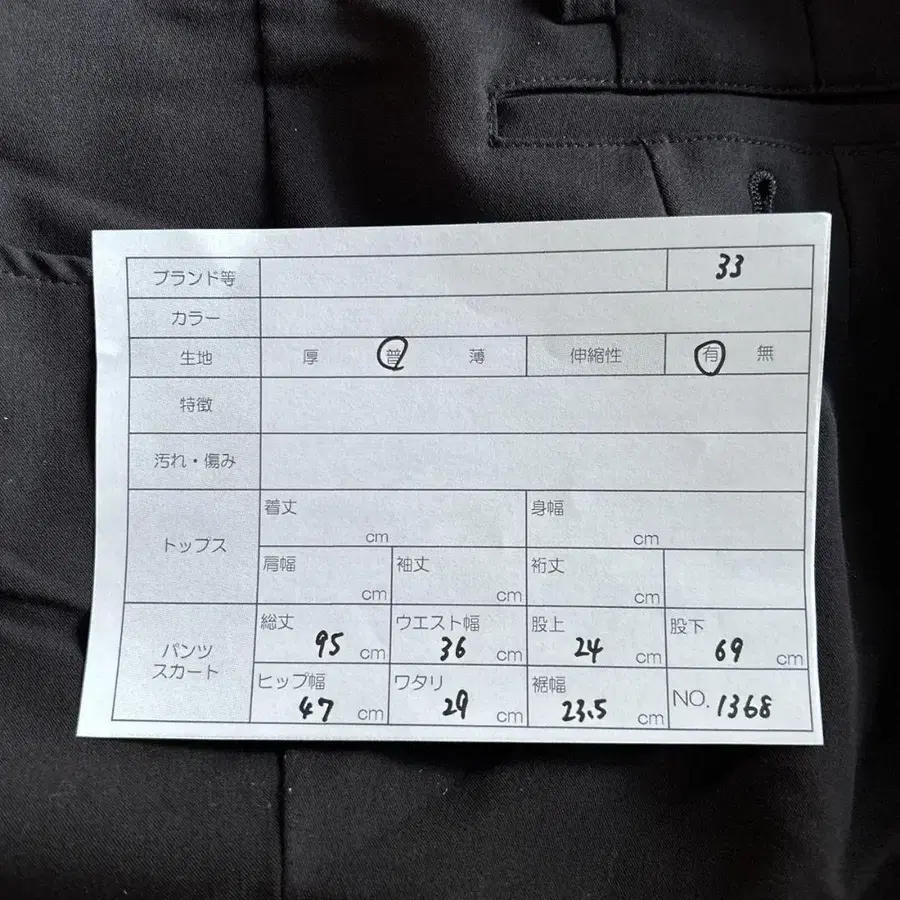 ブランド等 33
カラー
生地 厚 普 薄 伸縮性 有 無
特徴
汚れ・傷み
トップス
着丈 cm 身幅 cm
肩幅 cm 袖丈 cm 裄丈 cm
パンツ
スカート
総丈 95 cm ウエスト幅 36 cm 股上 24 cm 股下 69 cm
ヒップ幅 47 cm ワタリ 29 cm 裾幅 23.5 cm NO. 1368